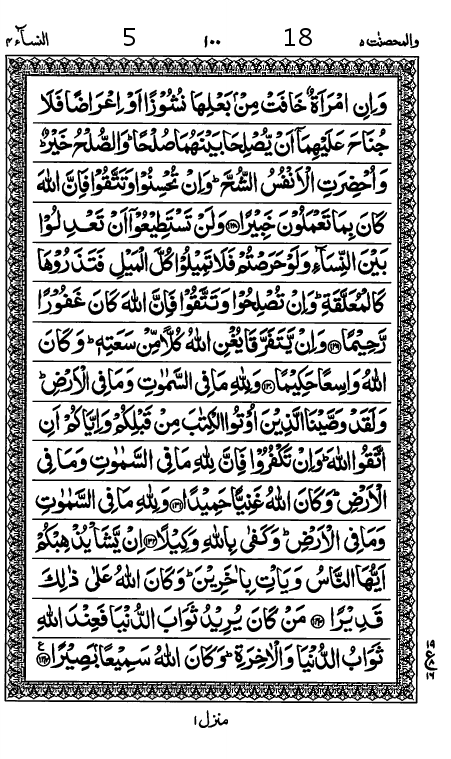 والمحصنت ٥ 18 ١٠٠ 5 النسآء ٤
وَاِنِ امْرَاَةٌ خَافَتْ مِنْۢ بَعْلِهَا نُشُوْزًا اَوْ اِعْرَاضًا فَلَا
جُنَاحَ عَلَيْهِمَاۤ اَنْ يُّصْلِحَا بَيْنَهُمَا صُلْحًاؕ وَالصُّلْحُ خَيْرٌؕ
وَاُحْضِرَتِ الْاَنْفُسُ الشُّحَّؕ وَاِنْ تُحْسِنُوْا وَتَتَّقُوْا فَاِنَّ اللّٰهَ
كَانَ بِمَا تَعْمَلُوْنَ خَبِيْرًا ﴿۱۲۸﴾ وَلَنْ تَسْتَطِيْعُوْۤا اَنْ تَعْدِلُوْا
بَيْنَ النِّسَآءِ وَلَوْ حَرَصْتُمْ فَلَا تَمِيْلُوْا كُلَّ الْمَيْلِ فَتَذَرُوْهَا
كَالْمُعَلَّقَةِؕ وَاِنْ تُصْلِحُوْا وَتَتَّقُوْا فَاِنَّ اللّٰهَ كَانَ غَفُوْرًا
رَّحِيْمًا ﴿۱۲۹﴾ وَاِنْ يَّتَفَرَّقَا يُغْنِ اللّٰهُ كُلًّا مِّنْ سَعَتِهٖؕ وَكَانَ
اللّٰهُ وَاسِعًا حَكِيْمًا ﴿۱۳۰﴾ وَلِلّٰهِ مَا فِى السَّمٰوٰتِ وَمَا فِى الْاَرْضِؕ
وَلَقَدْ وَصَّيْنَا الَّذِيْنَ اُوْتُوا الْكِتٰبَ مِنْ قَبْلِكُمْ وَاِيَّاكُمْ اَنِ
اتَّقُوا اللّٰهَؕ وَاِنْ تَكْفُرُوْا فَاِنَّ لِلّٰهِ مَا فِى السَّمٰوٰتِ وَمَا فِى
الْاَرْضِؕ وَكَانَ اللّٰهُ غَنِيًّا حَمِيْدًا ﴿۱۳۱﴾ وَلِلّٰهِ مَا فِى السَّمٰوٰتِ
وَمَا فِى الْاَرْضِؕ وَكَفٰى بِاللّٰهِ وَكِيْلًا ﴿۱۳۲﴾ اِنْ يَّشَاْ يُذْهِبْكُمْ
اَيُّهَا النَّاسُ وَيَاْتِ بِاٰخَرِيْنَؕ وَكَانَ اللّٰهُ عَلٰى ذٰلِكَ
قَدِيْرًا ﴿۱۳۳﴾ مَنْ كَانَ يُرِيْدُ ثَوَابَ الدُّنْيَا فَعِنْدَ اللّٰهِ
ثَوَابُ الدُّنْيَا وَالْاٰخِرَةِؕ وَكَانَ اللّٰهُ سَمِيْعًۢا بَصِيْرًا ﴿۱۳۴﴾
منزل ١